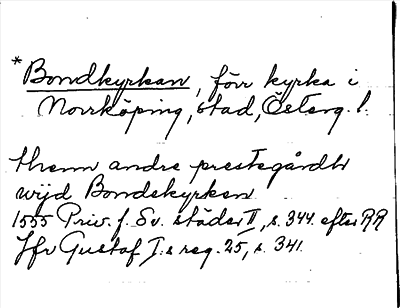 *Bondkyrkan, förr kyrka i
Norrköping, stad, Österg. l.
thenn andre prestegårdh
wijd Bondekyrken
1555 Priv. f. Sv. städer II, s. 344 efter RR
Jfr Gustaf I:s reg. 25, s. 341.